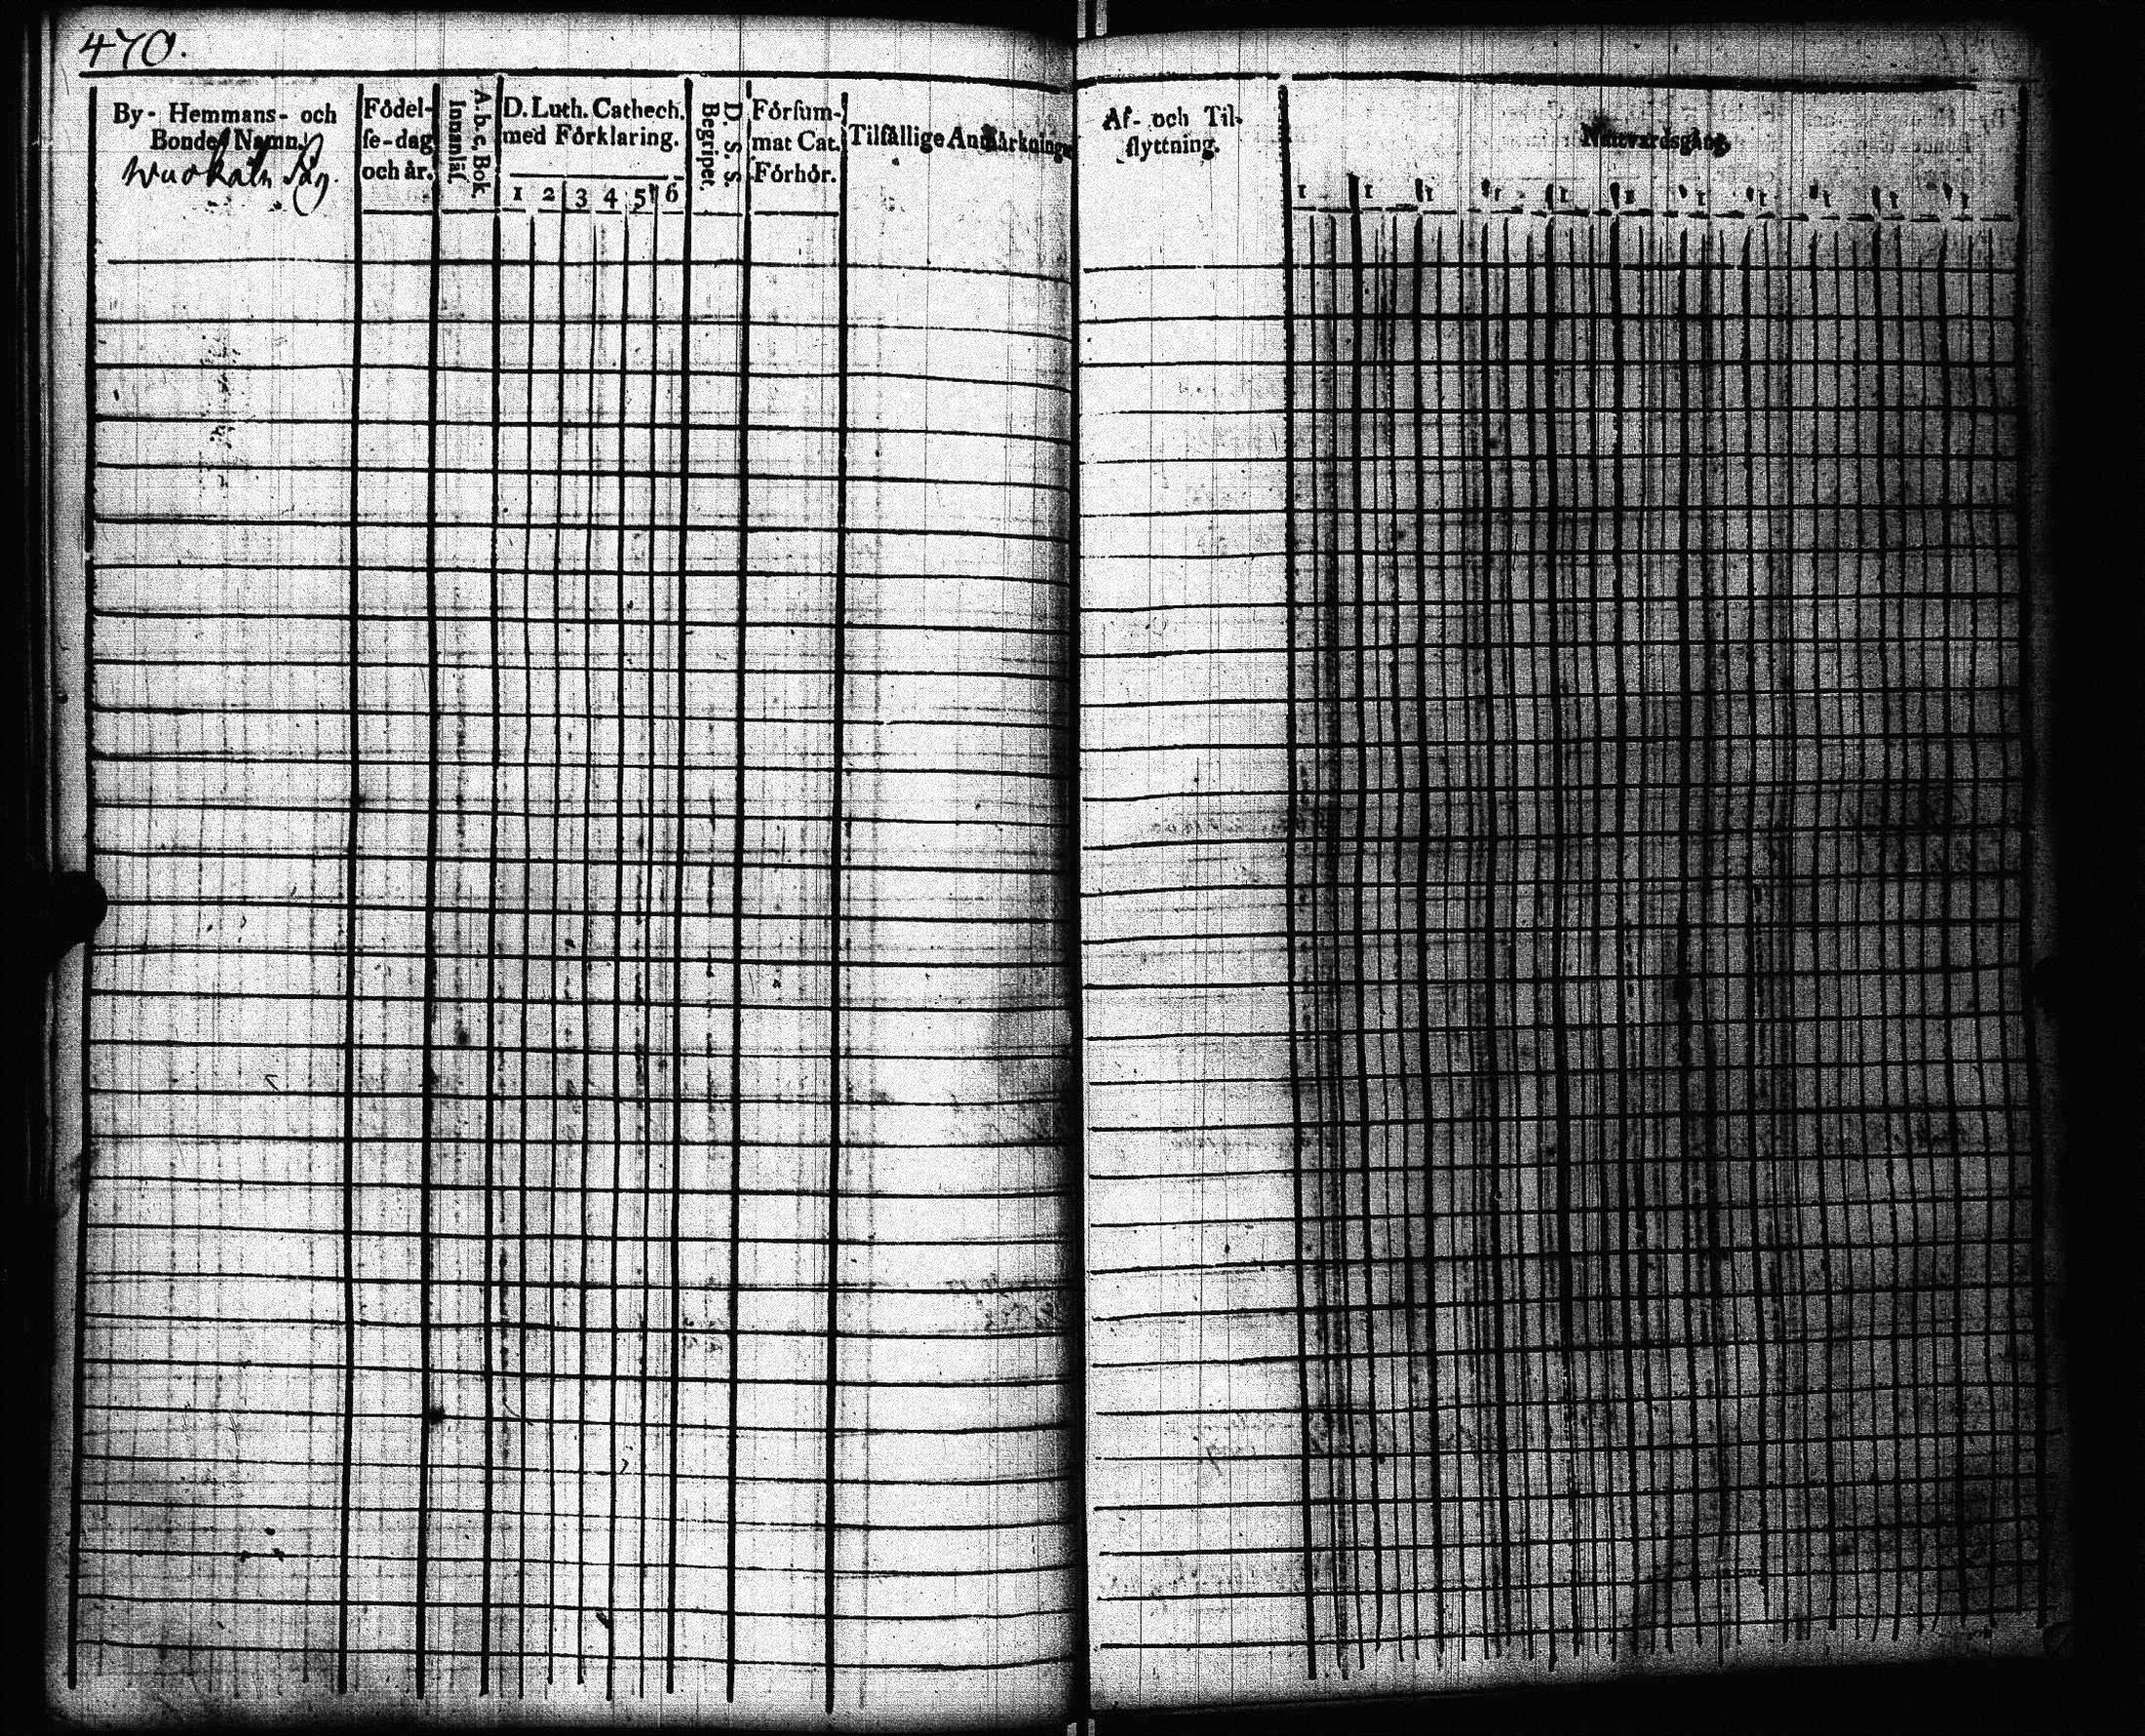 470.
By- Hemmans- och
Bondes Namn.
Fódel-
ſe-dag
och år.
A.b.c, Bok
Innanläſ.
D. Luth. Cathech.
med Fórklaring.
1 2 3 4 5 6
D. S. S.
Begriper.
Fórſum-
mat Cat.
Fórhór.
Tilfällige Anmärkningar
Af- och Til-
flyttning.
Nattvardsgång.
1 1 1 1 1 1 1 1 1 1 1